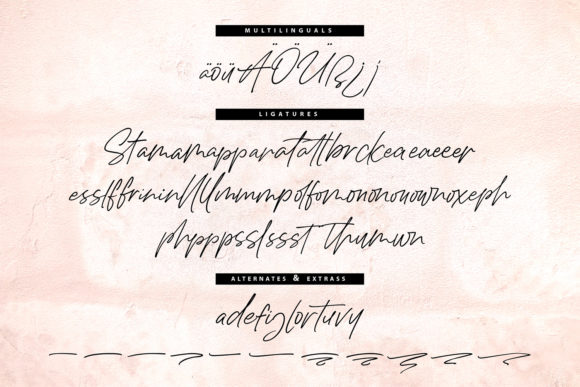 MULTILINGUALS
äöüÄÖÜßij
LIGATURES
Stamamapparatattbrckeaeaeeer
esslffrininllUmmmpoffomonononouownoxeph
phpppsslssst Thumwn
ALTERNATES & EXTRASS
adefiglortuvy